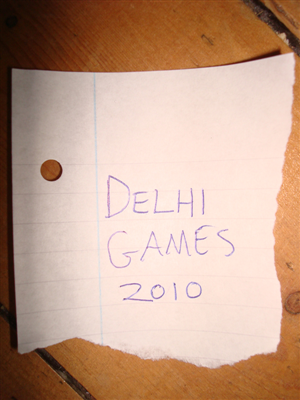 DELHI
GAMES
2010